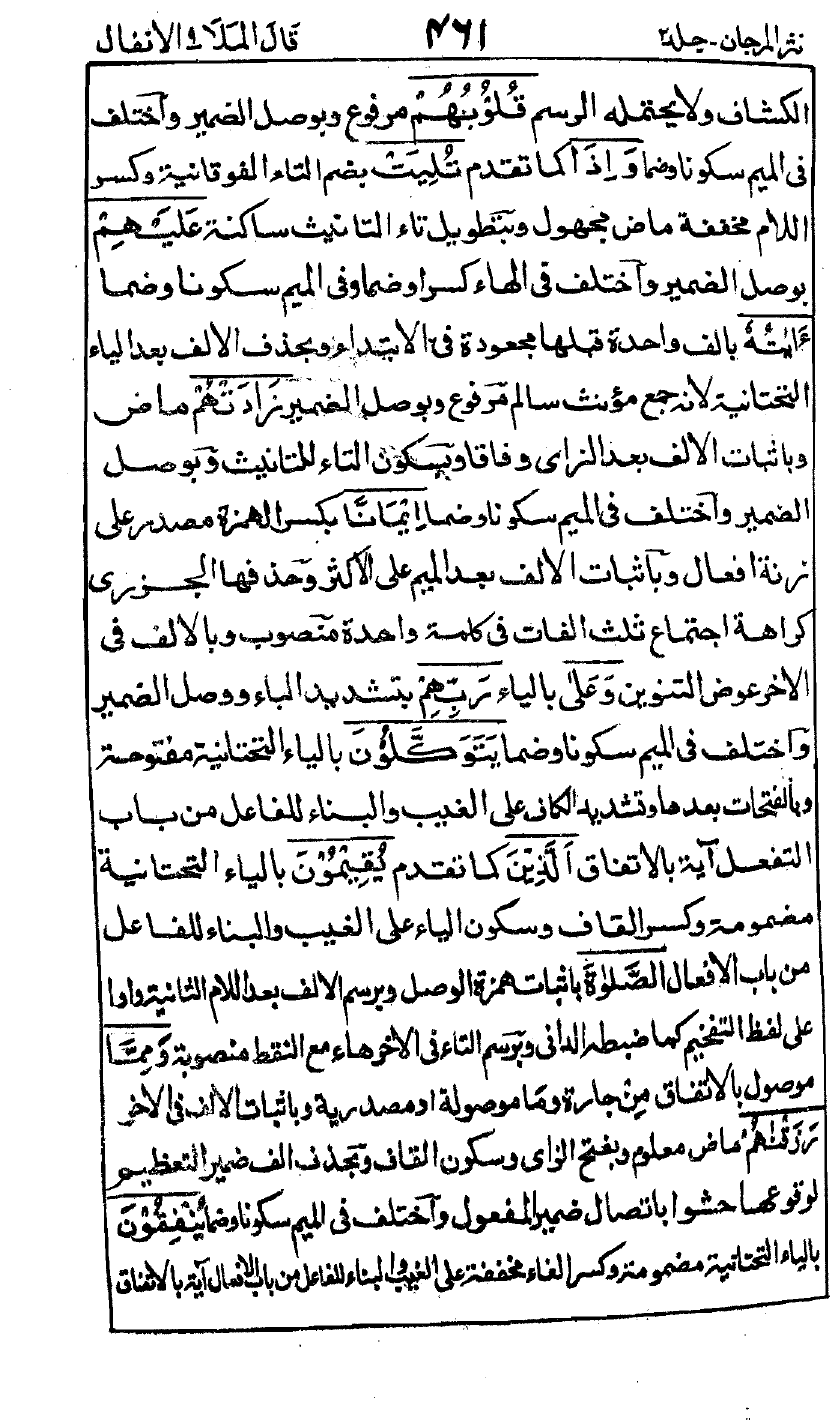 نثر المرجان - جلد ٢ ٤٦١ قال الملأ ٩ الانفال
الكشاف ولا يحتمله الرسم قُلُوْبُهُمْ مرفوع وبوصل الضمير واختلف
فى الميم سكونا وضما وَاِذَا كما تقدم تُلِيَتْ بضم التاء الفوقانية وكسر
اللام مخففة ماض مجهول وبتطويل تاء التانيث ساكنة عَلَيْهِمْ
بوصل الضمير واختلف فى الهاء كسرا وضما وفى الميم سكونا وضما
ءَايٰتُهٗ بالف واحدة قبلها مجعودة فى الابتداء وبحذف الالف بعد الياء
التحتانية لانه جمع مؤنث سالم مرفوع وبوصل الضمير زَادَتْهُمْ ماض
وباثبات الالف بعد الزاى وفاقا وبسكون التاء للتانيث وبوصل
الضمير واختلف فى الميم سكونا وضما اِيْمَانًا بكسر الهمزة مصدر على
زنة افعال وباثبات الالف بعد الميم على الاكثر وحذفها الجزرى
كراهة اجتماع ثلث الفات فى كلمة واحدة منصوب وبالالف فى
الاخر عوض التنوين وَعَلٰى بالياء رَبِّهِمْ بتشديد الباء ووصل الضمير
واختلف فى الميم سكونا وضما يَتَوَكَّلُوْنَ بالياء التحتانية مفتوحة
وبالفتحات بعدها وتشديد الكاف على الغيب والبناء للفاعل من باب
التفعل آية بالاتفاق اَلَّذِيْنَ كما تقدم يُقِيْمُوْنَ بالياء التحتانية
مضمومة وكسر القاف وسكون الياء على الغيب والبناء للفاعل
من باب الافعال الصَّلٰوةَ باثبات همزة الوصل وبرسم الالف بعد اللام الثانية واوا
على لفظ التفخيم كما ضبطه الدانى وبرسم التاء فى الاخر هاء مع النقط منصوبة وَمِمَّا
موصول بالاتفاق مِنْ جارة وما موصولة او مصدرية وباثبات الالف فى الاخر
رَزَقْنٰهُمْ ماض معلوم وبفتح الزاى وسكون القاف وبحذف الف ضمير التعظيم
لوقوعها حشوا باتصال ضمير المفعول واختلف فى الميم سكونا وضما يُنْفِقُوْنَ
بالياء التحتانية مضمومة وكسر الفاء مخففة على الغيب والبناء للفاعل من باب الافعال آية بالاتفاق